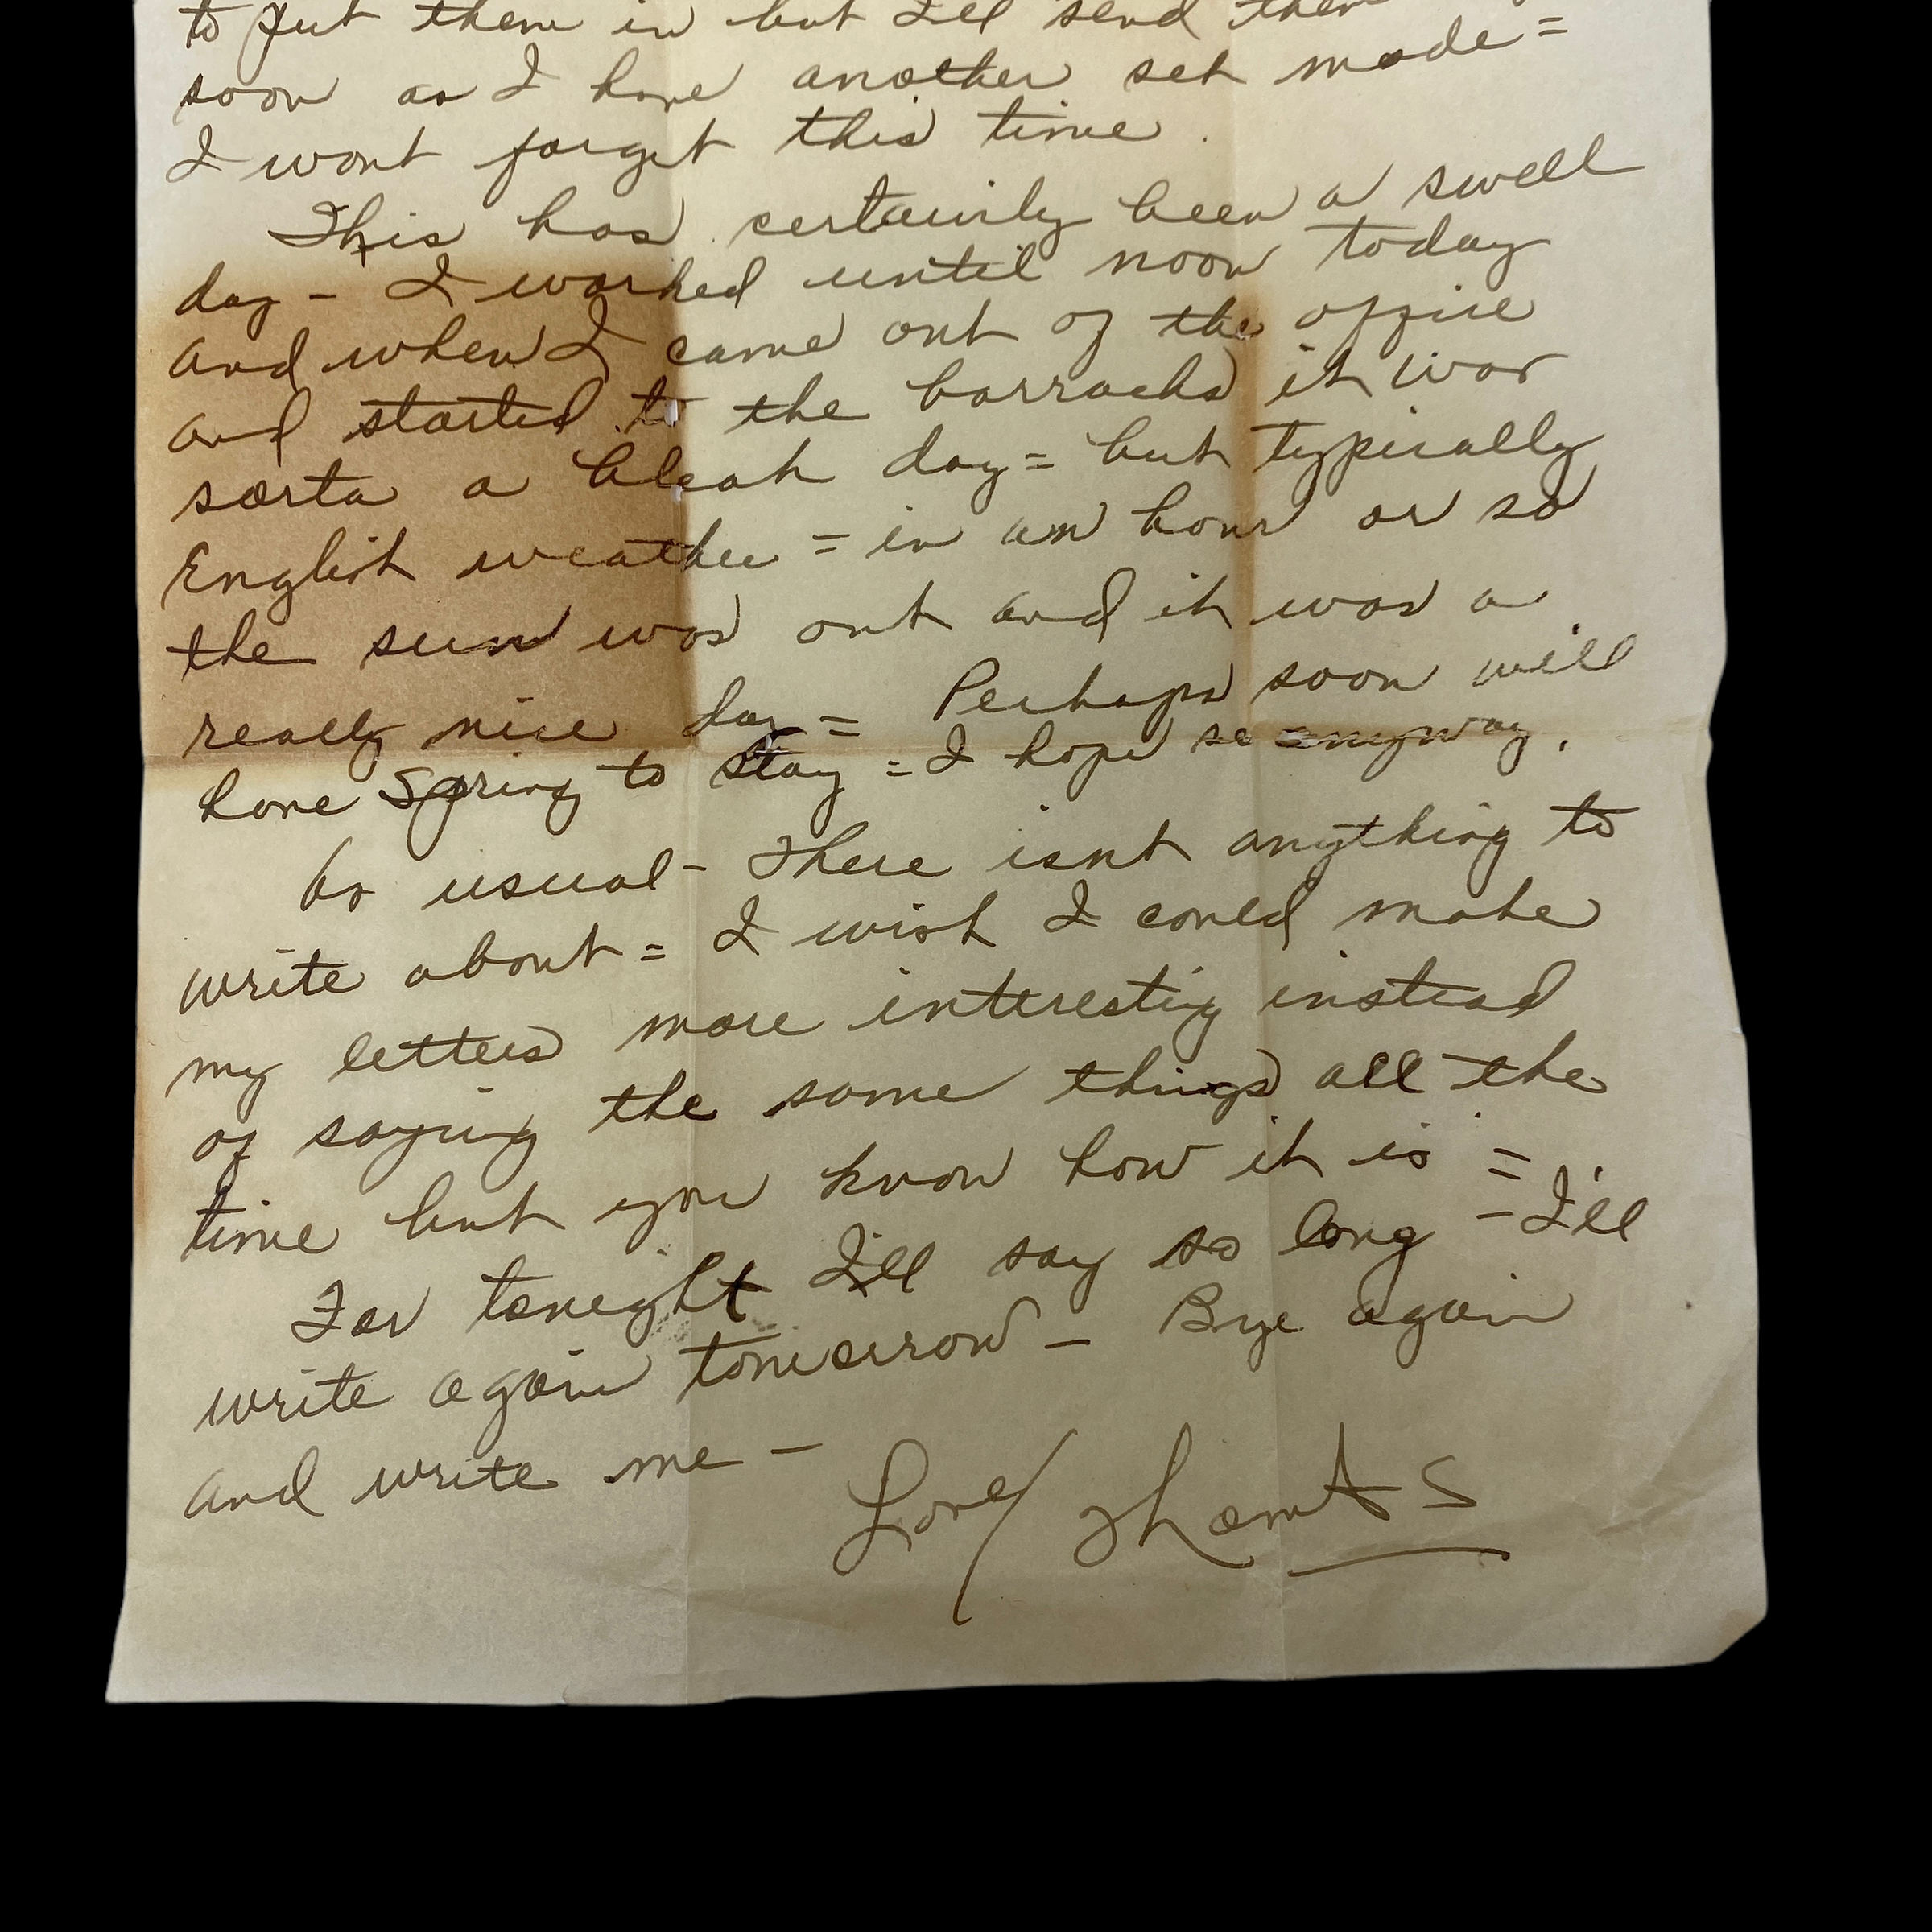 to put them in but I'll send them
soon as I have another set made =
I wont forget this time.
This has certainly been a swell
day - I worked until noon today
and when I came out of the office
and started to the barracks it was
sorta a bleak day = but typically
English weather = in an hour or so
the sun was out and it was a
really nice day = Perhaps soon will
have Spring to stay = I hope so anyway.
As usual - There isnt anything to
write about = I wish I could make
my letters more interesting instead
of saying the same things all the
time but you know how it is =
For toneight I'll say so long - I'll
write again tomorrow - Bye again
and write me -
Love